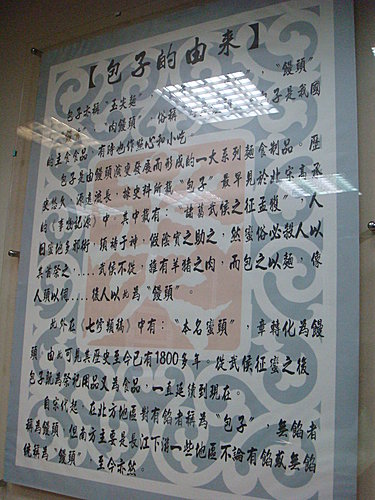 【包子的由来】
包子亦稱“玉尖麵”，“饅頭”
“肉饅頭”，俗稱 子是我國
的主食食品，有時也作點心和小吃。
包子是由饅頭演變發展而形成的一大系列麵食制品。歷
史悠久，源遠流長，據史料所載“包子”最早見於北宋高承
的《事物紀源》中，其中載有：“諸葛武侯之征孟獲”，人
曰蠻地多邪術，須禱于神，假陰賓之助之，然蠻俗必殺人以
其首祭之，……武侯不從，雜有羊豬之肉，而包之以麵，像
人頭以祠……後人以此為“饅頭”。
此外在《七修類稿》中有：“本名蠻頭”，音轉化為饅
頭，由此可見其歷史至今己有1800多年。從武侯征蠻之後
包子就為祭祀用品又為食品，一直延續到現在。
自宋代起，在北方地區對有餡者稱為“包子”，無餡者
稱為饅頭，但南方主要是長江下游一些地區不論有餡或無餡
統稱為“饅頭”，至今亦然。